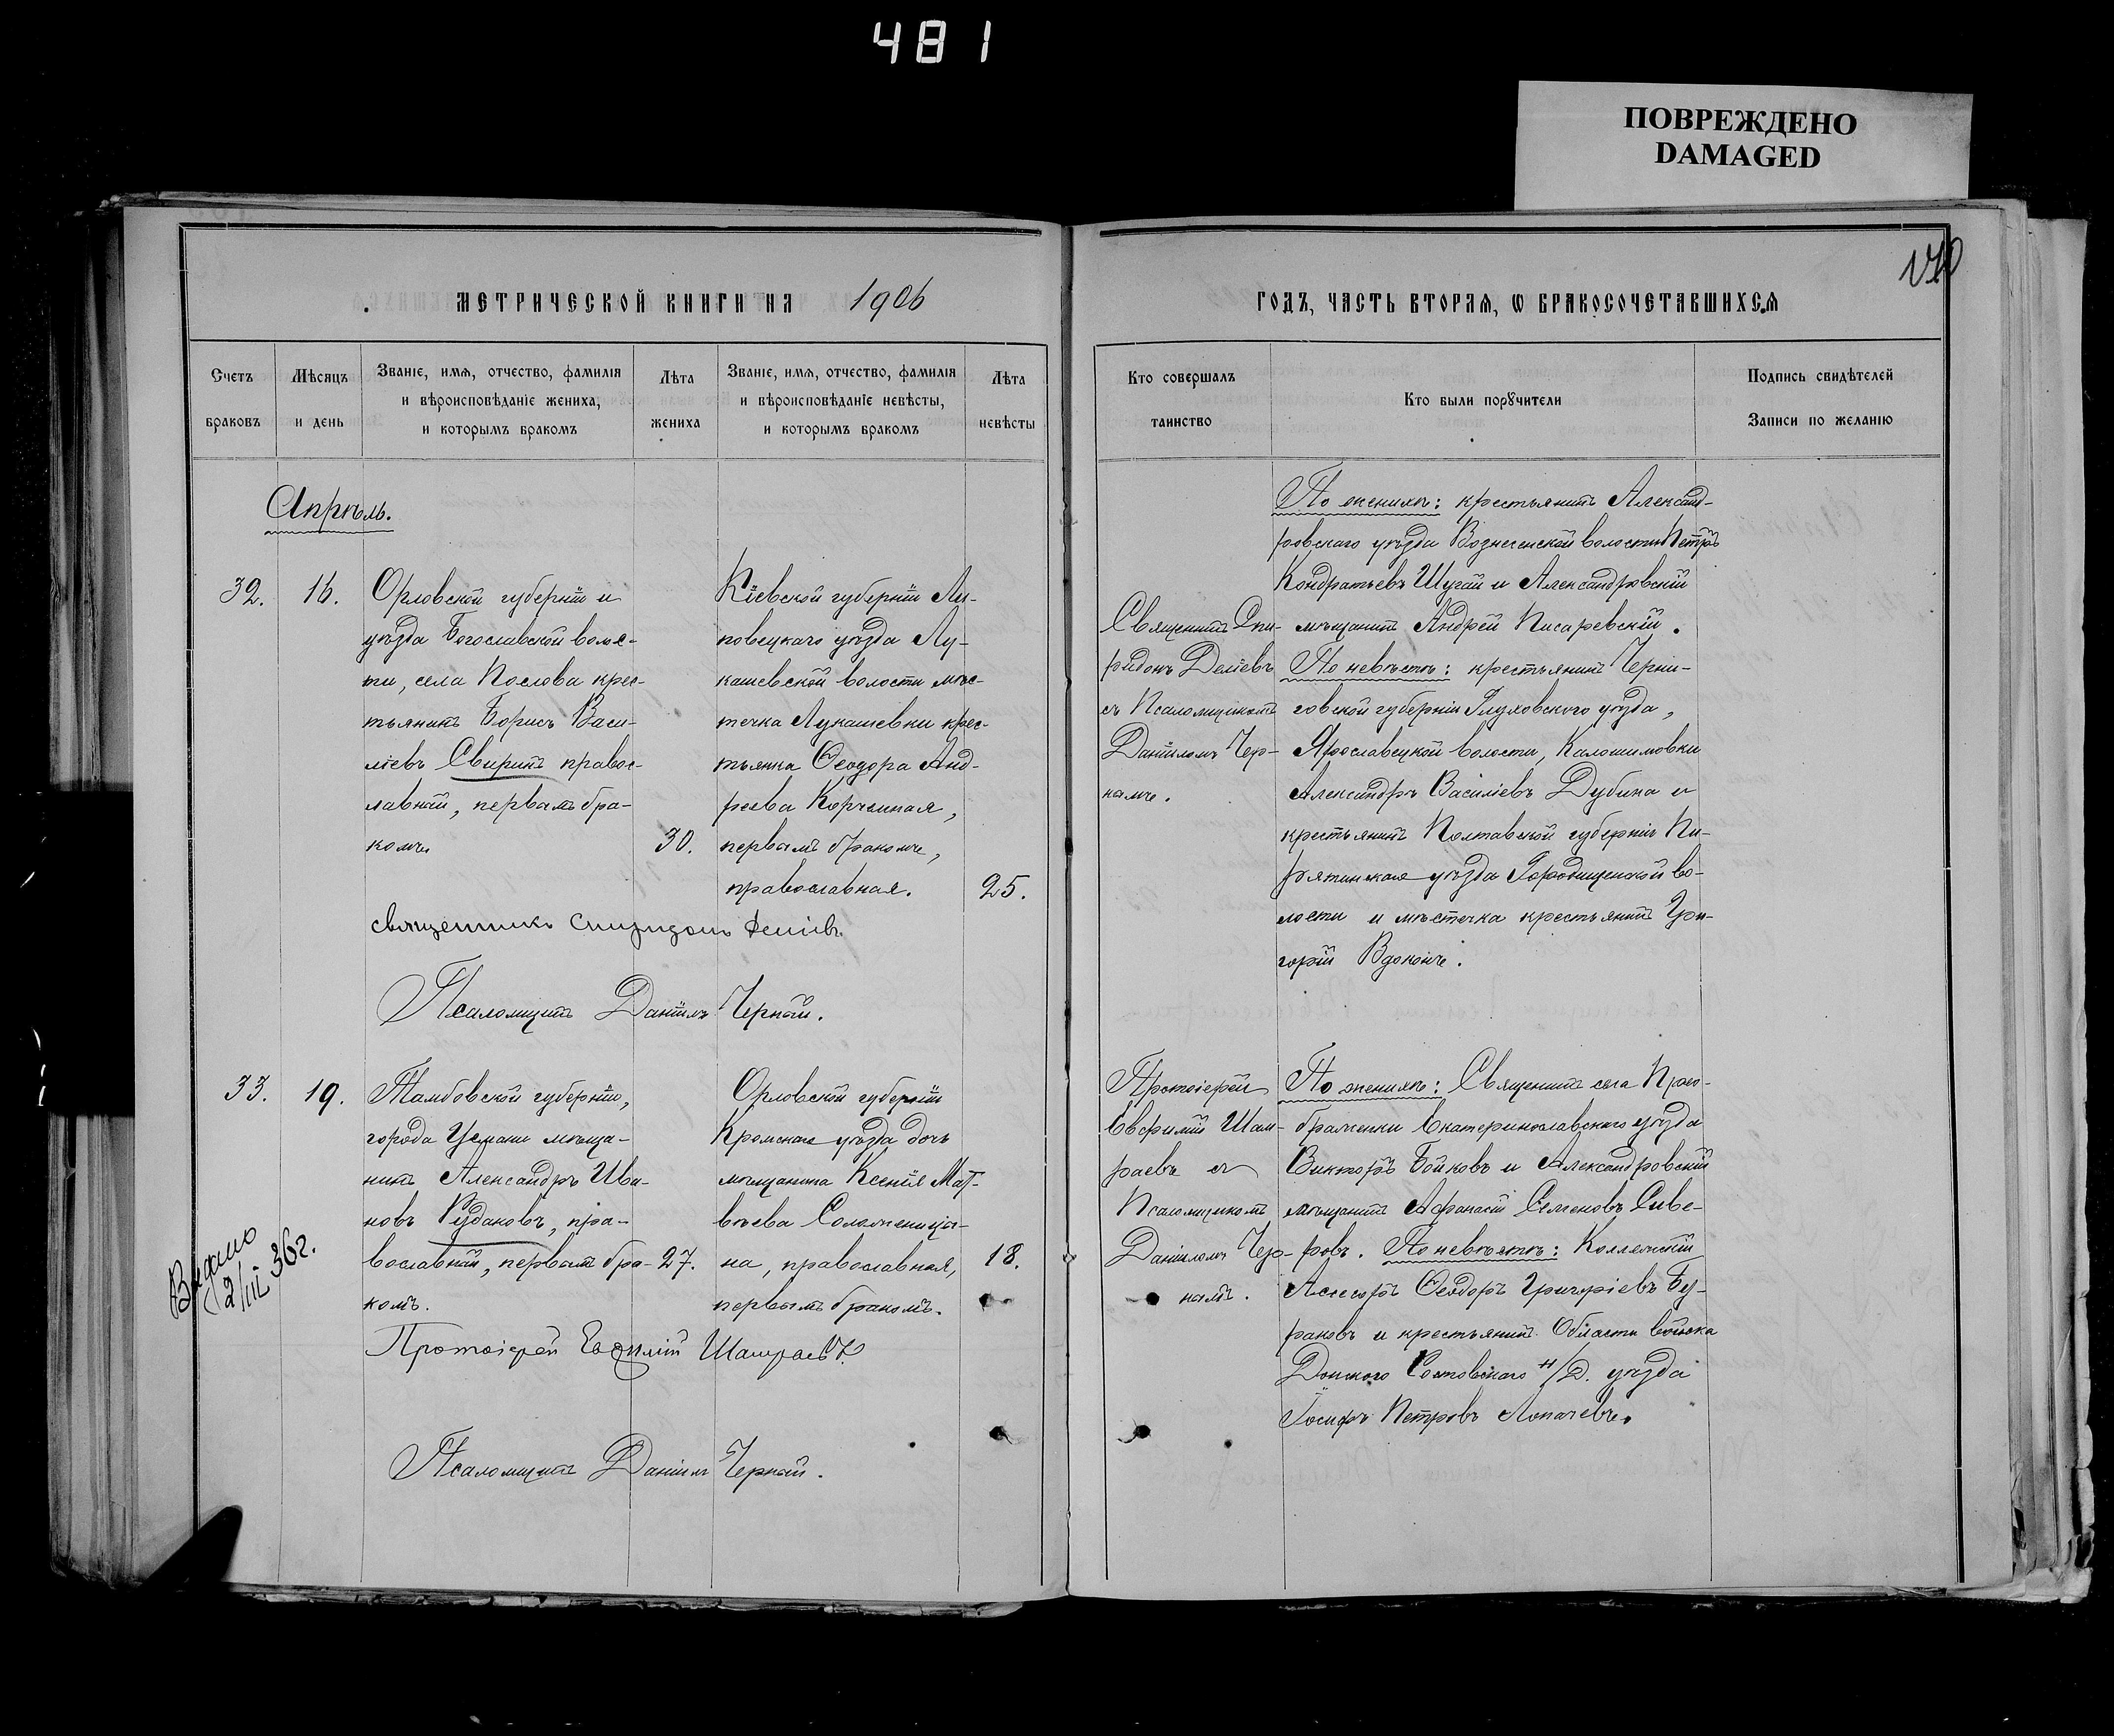 481
ПОВРЕЖДЕНО
DAMAGED
МЕТРИЧЕСКОЙ КНИГИ НА 1906
Счетъ
браковъ
Мѣсяцъ
и день
Званіе, имя, отчество, фамилія
и вѣроисповѣданіе жениха,
и которымъ бракомъ
Лѣта
жениха
Званіе, имя, отчество, фамилія
и вѣроисповѣданіе невѣсты,
и которымъ бракомъ
Лѣта
невѣсты
Апрѣль.
32.
16.
Орловской губерніи и
уѣзда Богославской волос-
ти, села Послова крес-
тьянинъ Борисъ Васи-
ліевъ Свиринъ правос-
лавный, первымъ бра-
комъ
30.
Кіевской губерніи Ли-
повецкаго уѣзда Лу-
кашевской волости мѣс-
течка Лукашевки крес-
тьянка Ѳеодора Анд-
реева Корчемная,
первымъ бракомъ,
православная.
25.
священникъ Спиридонъ Деліевъ
Псаломщикъ Даніилъ Черный.
33.
19.
Тамбовской губерніи,
города Усмани мѣща-
нинъ Александръ Ива-
новъ Рудаковъ, пра-
вославный, первымъ бра-
комъ.
27.
Орловской губерніи
Кромскаго уѣзда дочь
мѣщанина Ксенія Мат-
вѣева Соломенцѣ-
на, православная,
первымъ бракомъ.
18.
Протоіерей Евѳимій Шамраевъ
Псаломщикъ Даніилъ Черный.
2/III 36г.
ГОДЪ, ЧАСТЬ ВТОРАЯ, Ѡ БРАКОСОЧЕТАВШИХСЯ
Кто совершалъ
таинство
Кто были порꙋчители
Подпись свидѣтелей
Записи по желанію
Священникъ Спи-
ридонъ Деліевъ
съ Псаломщикомъ
Даніиломъ Чер-
нымъ.
По женихѣ: крестьянинъ Александ-
ровскаго уѣзда Вознесенской волости Петръ
Кондратьевъ Шугай и Александровскій
мѣщанинъ Андрей Писаревскій.
По невѣстѣ: крестьянинъ Черни-
говской губерніи Глуховского уѣзда,
Ярославецкой волости, Калошимовки
Александръ Василіевъ Дубина и
крестьянинъ Полтавской губерніи Пи-
рятинскаго уѣзда Городищенской во-
лости и мѣстечка крестьянинъ Гри-
горій
Протоіерей
Евѳимій Шам-
раевъ съ
Псаломщикомъ
Даніиломъ Чер-
нымъ.
По женихѣ: Священникъ села Прео-
браженки Екатеринославскаго уѣзда
Викторъ Бойковъ и Александровскій
мѣщанинъ Афанасій Семеновъ Сиве-
ровъ. По невѣстѣ: Коллежскій
Асессоръ Ѳеодоръ Григоріевъ Бу-
раковъ и крестьянинъ Области войска
Донского Ростовскаго н/Д. уѣзда
Іосифъ Петровъ Лопачевъ.